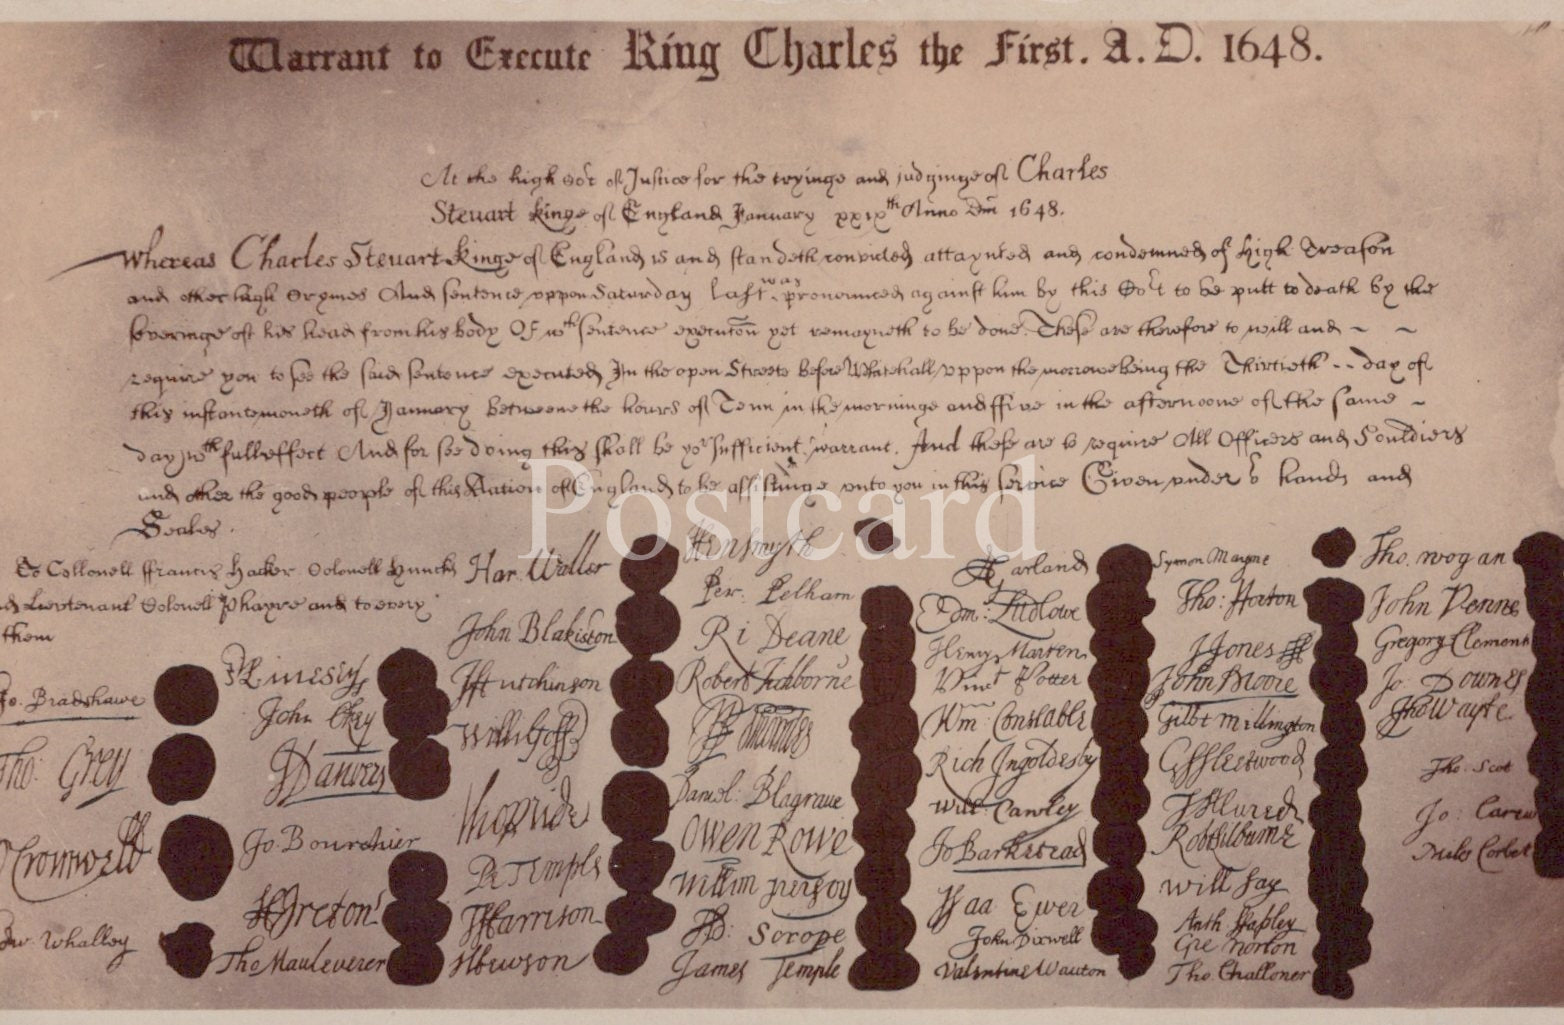 Warrant to Execute King Charles the First. A.D. 1648.
At the high Cort of Justice for the tryinge and iudginge of Charles
Steuart Kinge of England January xxixth Anno Dm 1648.
Whereas Charles Steuart Kinge of England is and standeth convicted attaynted and condemned of High Treason
and other high Crymes And sentence uppon Saturday last was pronounced against him by this Cort to be putt to death by the
severinge of his head from his body Of wch sentence execucon yet remayneth to be done. These are therefore to will and
require you to see the said sentence executed In the open Streete before Whitehall uppon the morrowe being the Thirtieth day of
this instante moneth of January betweene the hours of Tenn in the morninge and ffive in the afternoone of the same
day wth full effect And for soe doing this shall be yor sufficient warrant. And these are to require All Officers and Souldiers
and other the good people of this Nation of England to be assistinge unto you in this service Given under or hands and
Seales.
To Collonell ffrancis Hacker Colonell Huncks
Lieutenant Colonell Phayre and to every
them
Jo. Bradshawe
Tho: Grey
O Cromwell
Edw: Whalley
M Livesey
John Okey
J Danvers
Jo Bourchier
H Ireton
Tho Mauleverer
Har. Waller
John Blakiston
J Hutchinson
Willi Goffe
Tho Pride
P Temple
T Harrison
J Hewson
Hen Smyth
Per. Pelham
Ri Deane
Robert Tichborne
H Edwardes
Daniel Blagrave
Owen Rowe
Willm Purefoy
Ad: Scrope
James Temple
A Garland
Edm: Ludlowe
Henry Marten
Vinct Potter
Wm Constable
Rich Ingoldesby
Will: Cawley
Jo Barkstead
Isaa Ewer
John Dixwell
Valentine Wauton
Symon Mayne
Tho: Horton
J Jones
John Moore
Gilbt Millington
G Fleetwood
J Alured
Rob Lilburne
Will Say
Anth Stapley
Gre Norton
Tho Challoner
Tho. Wogan
John Venne
Gregory Clement
Jo. Downes
Tho Wayte
Tho. Scot
Jo: Carew
Miles Corbet
Postcard